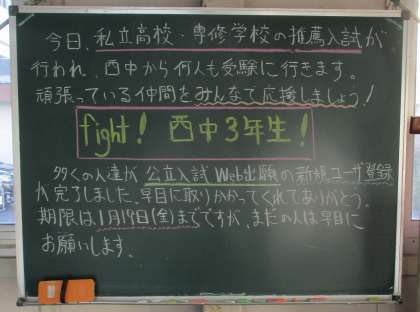 今日、私立高校・専修学校の推薦入試が
行われ、西中から何人も受験に行きます。
頑張っている仲間をみんなで応援しましょう!
fight! 西中3年生!
多くの人達が公立入試Web出願の新規ユーザ登録
が完了しました。早目に取りかかってくれてありがとう。
期限は1月19日(金)までですが、まだの人は早目に
お願いします。